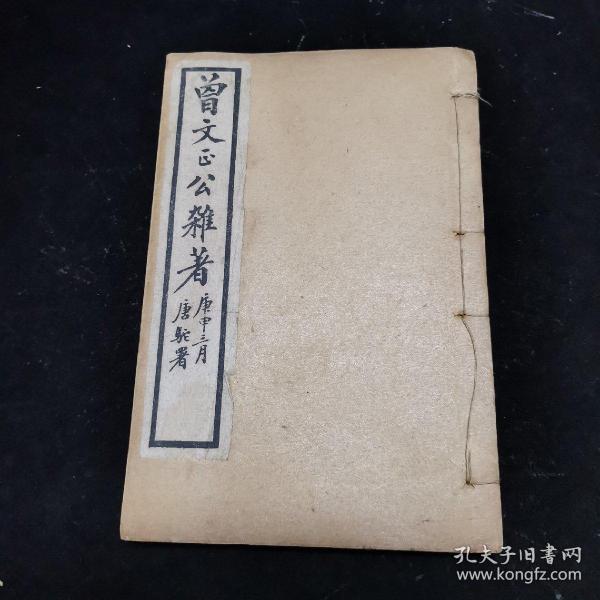 曾文正公雜著
庚申三月
唐駝署
孔夫子旧书网
www.kongfz.com